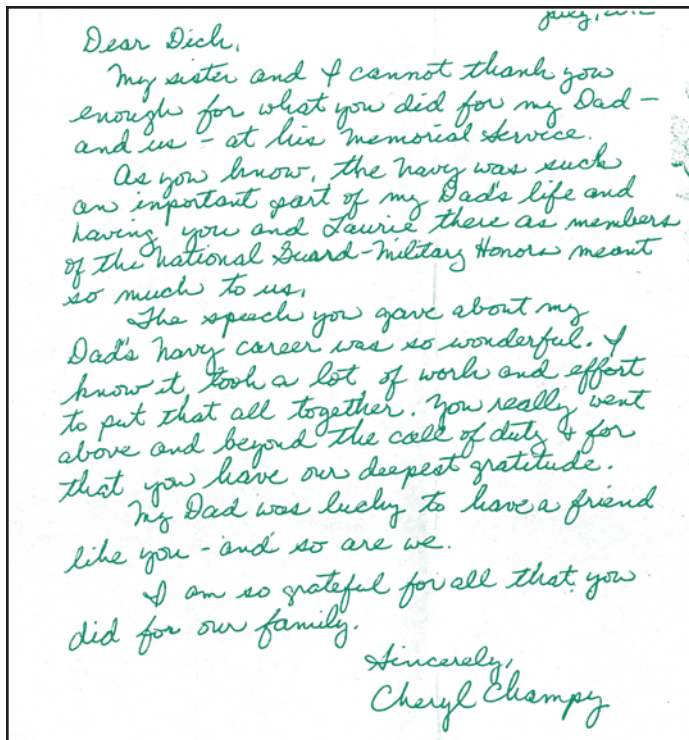 July,
Dear Dick,
My sister and I cannot thank you
enough for what you did for my Dad -
and us - at his Memorial Service.
As you know, the Navy was such
an important part of my Dad's life and
having you and Laurie there as members
of the National Guard-Military Honors meant
so much to us.
The speech you gave about my
Dad's Navy career was so wonderful. I
know it took a lot of work and effort
to put that all together. You really went
above and beyond the call of duty & for
that you have our deepest gratitude.
My Dad was lucky to have a friend
like you - and so are we.
I am so grateful for all that you
did for our family.
Sincerely,
Cheryl Champy